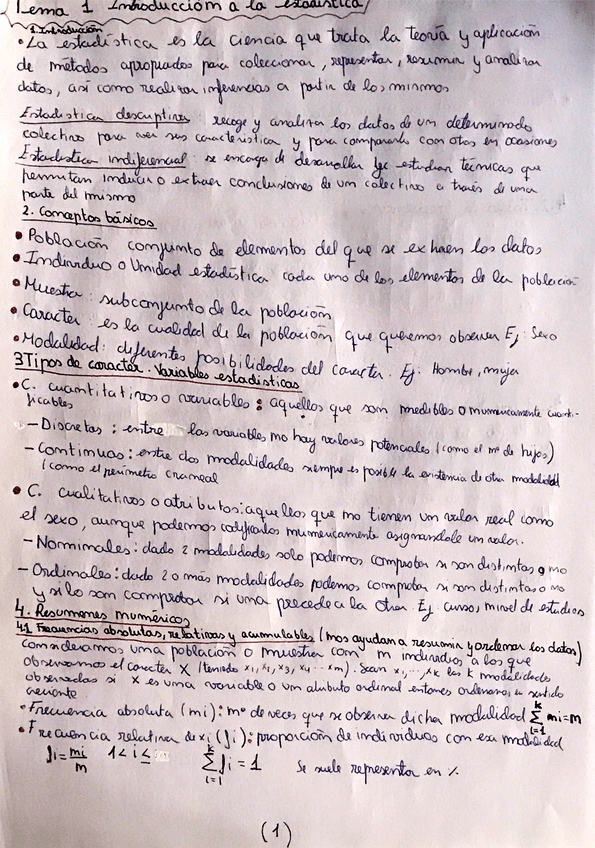 Tema 1 Introducción a la estadística
1. Introducción
• La estadística es la ciencia que trata la teoría y aplicación
de métodos apropiados para coleccionar, representar, resumir y analizar
datos, así como realizar inferencias a partir de los mismos
Estadística descriptiva: recoge y analizar los datos de un determinado
colectivo para ver sus característica y para compararlo con otos en ocasiones
Estadística indiferencial: se encarga de desarrollar estudiar técnicas que
permitan inducir o extraer conclusiones de un colectivo a través de una
parte del mismo
2. Conceptos básicos
• Población conjunto de elementos del que se extraen los datos
• Individuo o Unidad estadística cada uno de los elementos de la población
• Muestra: subconjunto de la población
• Caracter: es la cualidad de la población que queremos observar Ej: Sexo
• Modalidad: diferentes posibilidades del caracter. Ej: Hombre, mujer
3 Tipos de caracter. Variables estadísticas
• C. cuantitativos o variables: aquellos que son medibles o numéricamente cuanti-
ficables
– Discretas: entre las variables no hay valores potenciales (como el nº de hijos)
– Continuas: entre dos modalidades siempre es posible la existencia de otra modalidad
(como el perímetro craneal
• C. cualitativos o atributos: aquellos que no tienen un valor real como
el sexo, aunque podemos codificarlos numéricamente asignandole un valor.
– Nominales: dado 2 modalidades solo podemos comprobar si son distintas o no
– Ordinales: dado 2 o más modalidades podemos comprobar si son distintas o no
y si lo son comprobar si una precede a la otra. Ej curso, nivel de estudios
4. Resumenes numéricos
4.1 Frecuencias absolutas, relativas y acumulables (nos ayudan a resumir y ordenar los datos)
Consideramos una población o muestra con n individuos a los que
observamos el caracter X (teniendo x₁, x₂, x₃, x₄ ... xn). Sean x₁, ..., xk las k modalidades
observadas si X es una variable o un atributo ordinal entonces ordenaros en sentido
creciente
• Frecuencia absoluta (ni): nº de veces que se observa dicha modalidad ∑ᵏᵢ₌₁ ni=n
• Frecuencia relativa de xi (fi): proporción de individuos con esa modalidad
fi = ni/n 1 < i ≤ ∑ᵏᵢ₌₁ fi = 1 Se suele representar en %
(1)